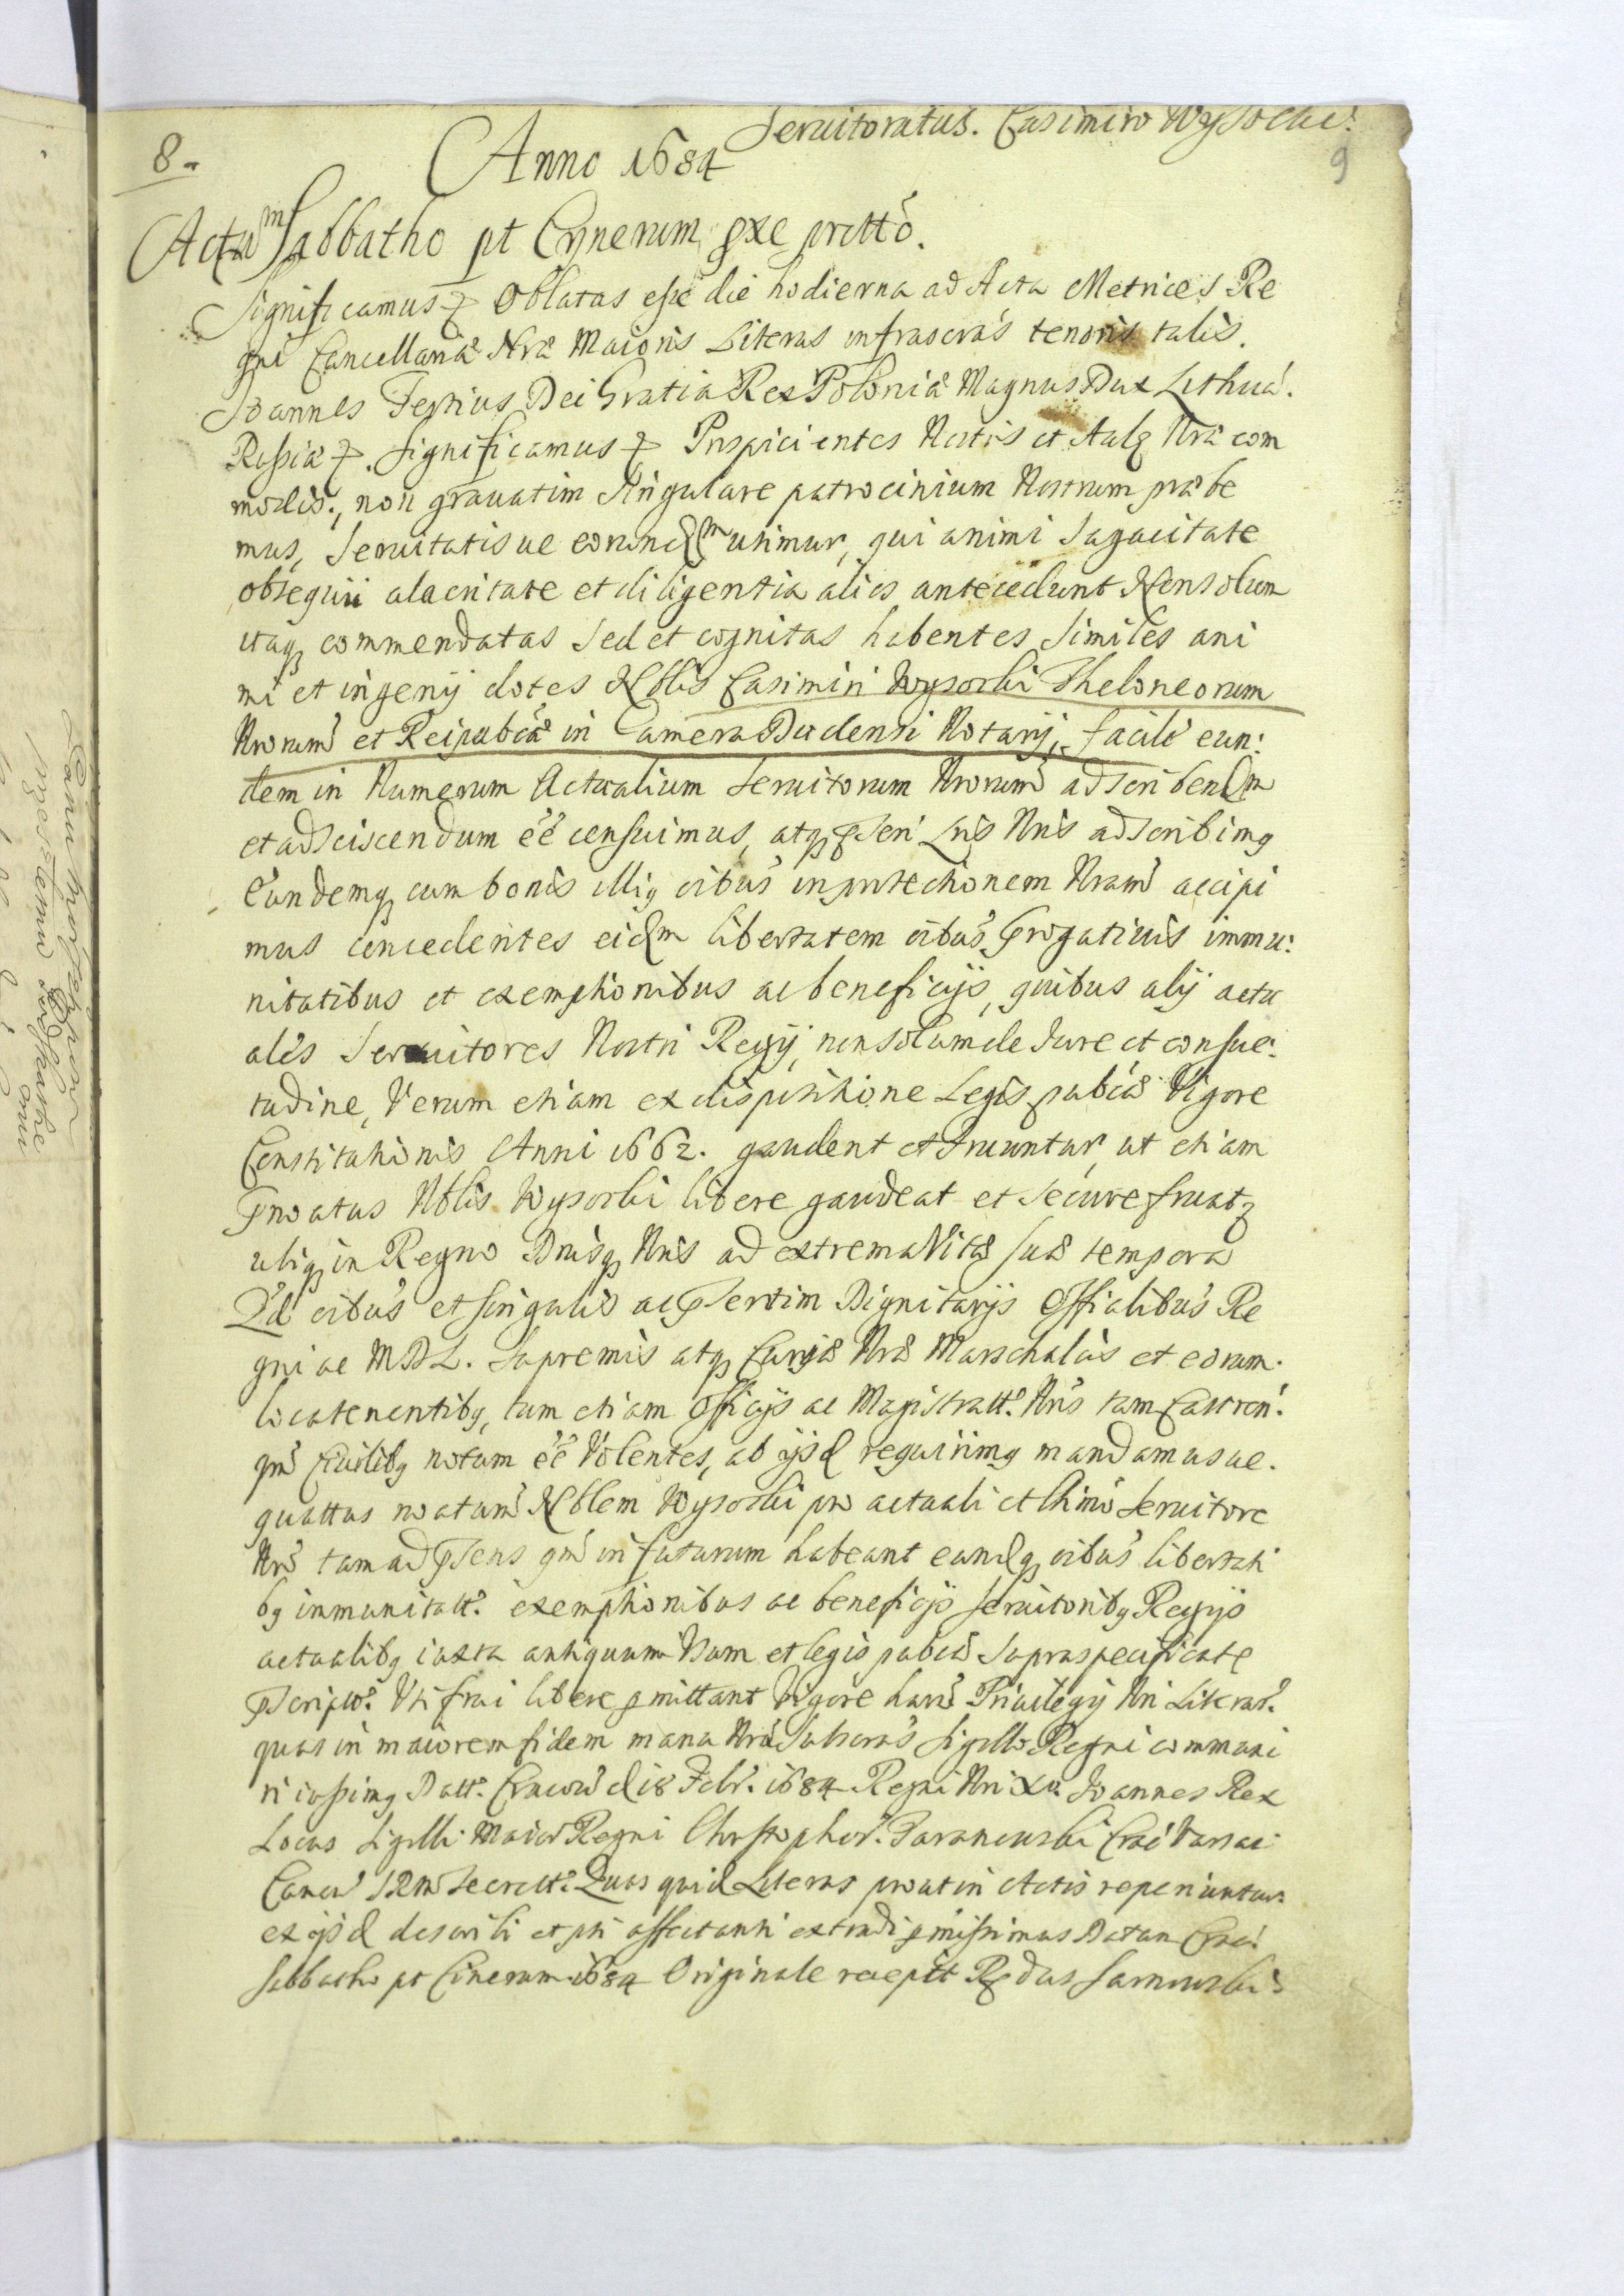 8.
Seruitoratus. Casimiro Wysocki.
9
Anno 1684
Actum Sabbatho pt Cynerum pxe pritto.
Significamus Oblatas esse die hodierna ad Acta Metrices Re
gni Cancellariæ Nræ Maioris Literas infrascrás tenoris talis.
Joannes Tertius Dei Gratia Rex Poloniæ Magnus Dux Lithuá.
Russiæ Significamus Prospicientes Nostris et Aulę Nræ com
modis, non grauatim singulare patrocinium Nostrum præbe
mus, seruitatisue eorundm utimur, qui animi sagacitate
obsequii alacritate et diligentia alios antecedunt Non solum
itaq commendatas sed et cognitas habentes similes ani
mi et ingenij dotes Nblis Casimiri Wysocki Theloneorum
Nrorum et Reipubcæ in Camera Notarij, facile eun:
dem in Numerum Actualium Seruitorum Nrorum adscribendm
et adsciscendum éé censuimus, atq pseń Lris Nris adscribimg
Eundemq cum bonis illig oibus in protectionem Nram accipi
mus concedentes eidm libertatem oibus prrogatiuis immu:
nitatibus et exemptionibus ac beneficijs, quibus alij actu
ales Seruitores Nostri Regij, non solum de Jure et consue:
tudine, Verum etiam ex dispositione Legis pubcæ Vigore
Constitutionis Anni 1662. gaudent et fruuntur, ut etiam
pnoatus Nblis Wysocki libere gaudeat et secure fruatz
ubiq in Regno Dnisq Nris ad extrema Vitæ suæ tempora
Qd oibus et singulis ac psertim Dignitarijs Offialibus Re
gni ac MDL. Supremis atq Curiæ Nræ Marschalcis et eorum.
locatenentibg, tum etiam Officijs ac Magistratt. Nris tam Castreń.
qm Ciuilibg notum éé Volentes, ab ijsd requirimg mandamusue.
quattus noatum Nblem Wysocki pro actuali et Seruitore
Nro tam ad psens qm in futurum habeant eundq oibus libertati
bg immunitatt. exemptionibus ac beneficijs seruitoribg Regijs
actualibg iuxta antiquum Usum et legis pubcæ supraspecificate
pscript. Uti frui libere pmittant Vigore harum Priuilegij Nri Literar.
quas in maiorem fidem manu Nra Subscras Sigillo Regni communi
ri iussimg Datt. Cracou d 18 Febr. 1684 Regni Nri Xu Joannes Rex
Locus Sigilli Maior Regni Chrstophor. Varsae
SRM Secrett. Quas quid Literas prout in Actis reperiuntur
ex ijsd describi et pti affectanti extradi pmissimus Datan Crac.
sabbatho pt Cinerum 1684 Originale recepit